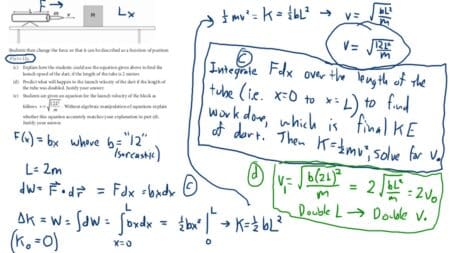 F →
M
L x
Students then change the force so that it can be described as a function of position
(c) Explain how the students could use the equation given above to find the
launch speed of the dart, if the length of the tube is 2 meters
(d) Predict what will happen to the launch velocity of the dart if the length of
the tube was doubled. Justify your answer.
(e) Students are given an equation for the launch velocity of the block as
follows: v = √12L²/m. Without algebraic manipulation of equations explain
whether this equation accurately matches your explanation in part c.
Justify your answer.
F(x) = bx where b = "12"
(sarcastic)
L = 2m
dW = F⃗·dr⃗ = Fdx = bxdx
ΔK = W = ∫dW = ∫ bxdx = ½bx² | → K = ½bL²
L
x=0
L
0
(K₀=0)
→ ½mv² = K = ½bL² → v = √bL²/m
v = √12L²/m
(c)
Integrate Fdx over the length of the
tube (i.e. x=0 to x=L) to find
work done, which is final KE
of dart. Then K=½mv², solve for v.
(e)
(d) v₁ = √b(2L)²/m = 2√bL²/m = 2v₀
Double L → Double v.